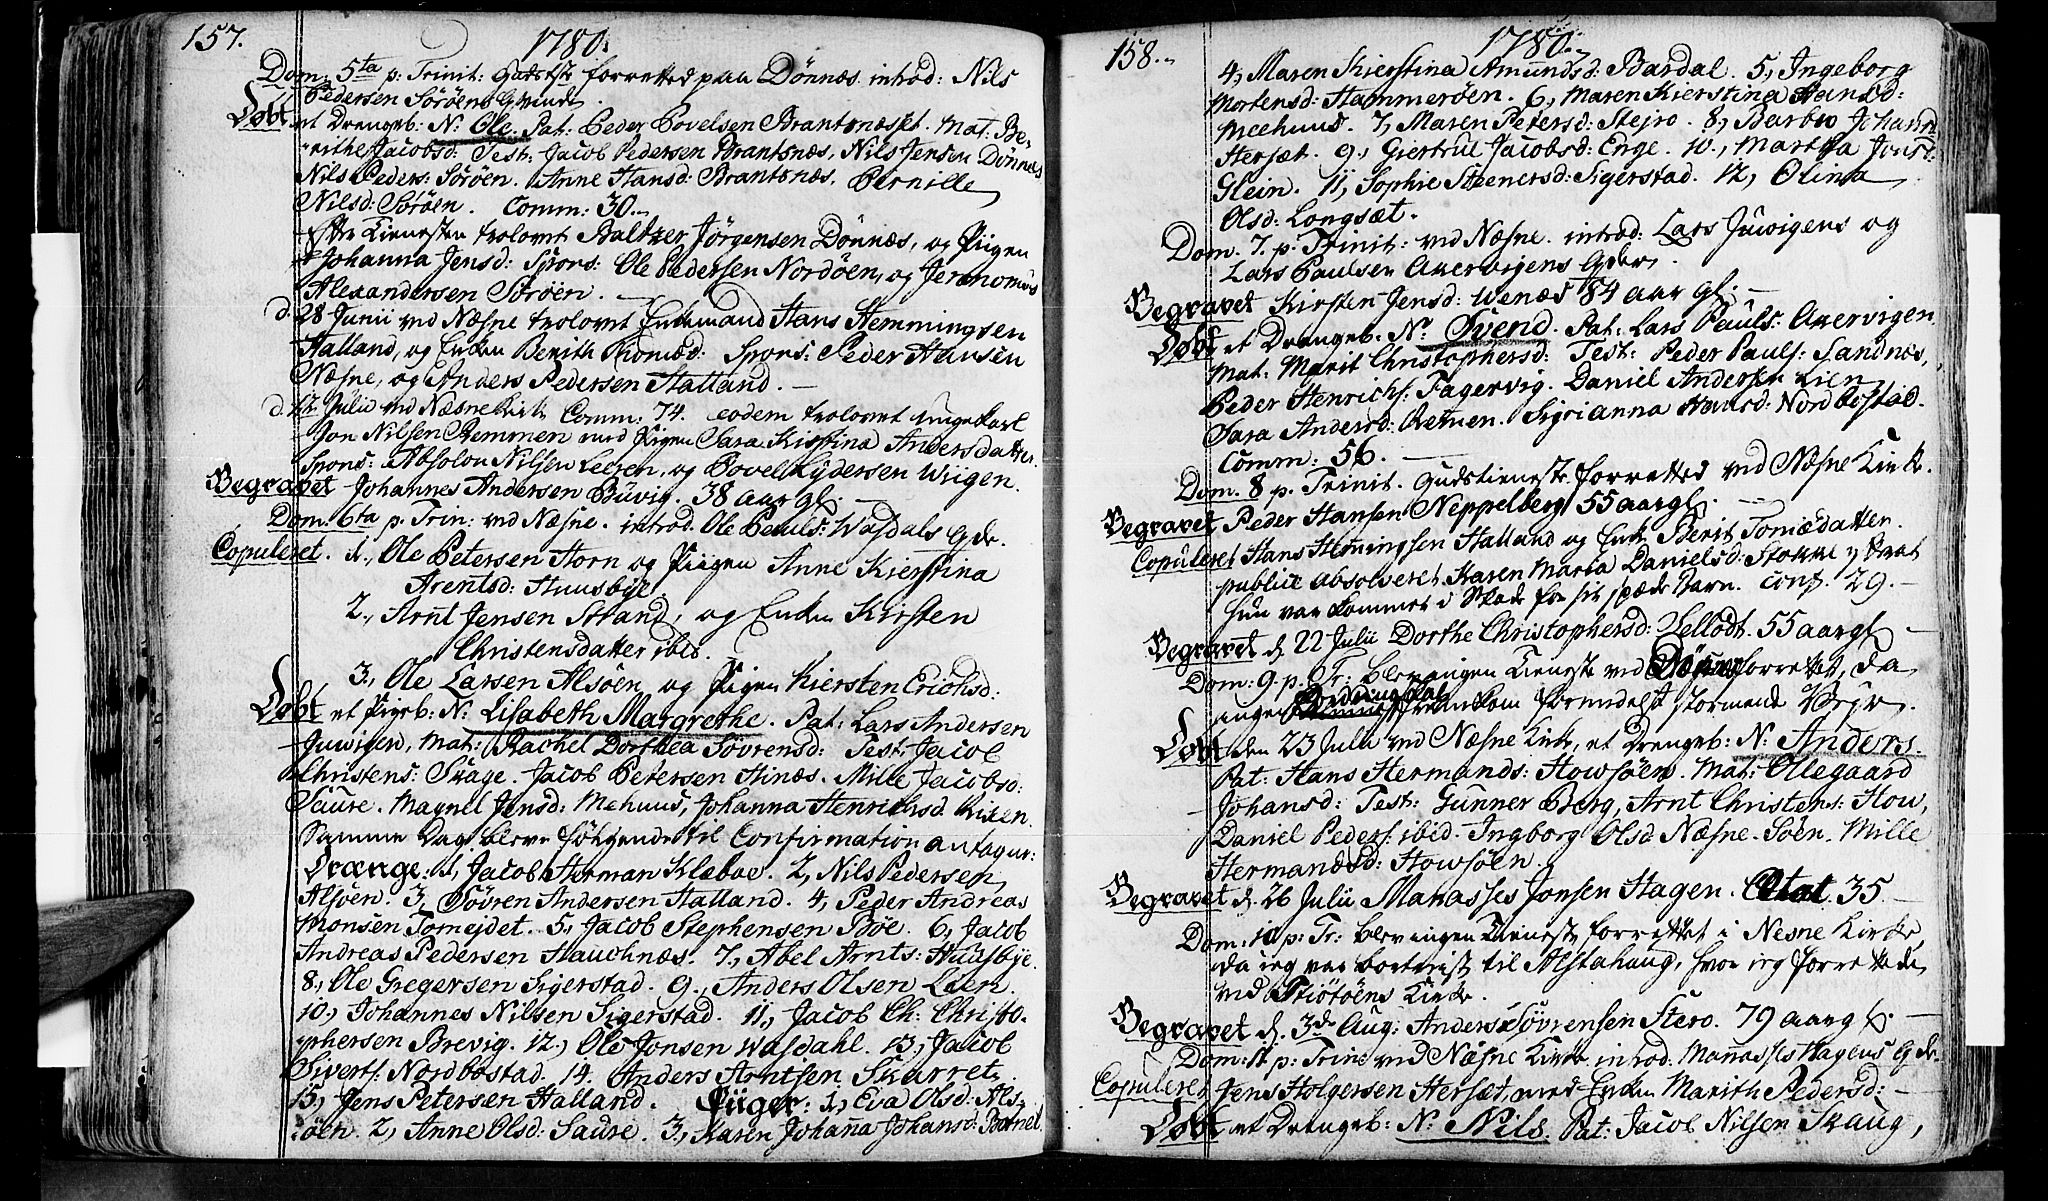 157.
1780.
Dom: 5ta p: Trinit: Gudstste forretted paa Dönnes. introd: Nils
Pedersen Söröens Qvinde.
Döbt et Drengeb: N: Ole. Pat: Peder Povelsen Brantsnæsset. Mat: Be-
rithe Jacobsd: Test: Jacob Pedersen Brantsnæs, Nils Jensen Dönnes,
Nils Peders: Söröen. Anne Hansd: Brantsnæs. Pernille
Nilsd: Söröen. Comm: 30.
Efter Tienesten trolovet Baltzer Jörgensen Dönnæs, og Piigen
Johanna Jensd: Spons: Ole Pedersen Nordöen, og Jeronomus
Alexandersen Söröen.
d. 28 Junii ved Næsne trolovet Enkemand Hans Hemmingsen
Halland, og Enken Berith Thomæd: Spons: Peder Hansen
Næsne, og Anders Pedersen Halland.
d. 12 Julii ved Næsne Kirk Comm: 74. eodem trolovet ungekarl
Jon Nilsen Remmen med Pigen Sara Kistina Andersdatter.
Spons: Absolon Nilsen Leeren, og Povel Pedersen Wiigen.
Begravet Johannes Andersen Büvig. 38 aar gl.
Dom: 6ta p: Trin: ved Næsne. introd. Ole Pauls: Wasdals Qde.
Copuleret. 1., Ole Petersen Horn og Piigen Anne Kierstina
Arentsd: Huusbye.
2., Arnt Jensen Strand, og Enken Kirsten
Christensdatter ibid.
3., Ole Larsen Alsöen og Pigen Kiersten Erichsd:
Döbt et Pigeb: N: Lisabeth Margrethe. Pat: Lars Andersen
Juwigen, Mat: Rachel Dorthea Sövrensd: Test: Jacob
Christens: Skage. Jacob Petersen Hinæs. Mille Jacobsd:
Saure. Magnel Jensd: Mehuus, Johanna Henrichsd:
Samme Dag bleve fölgende til Confirmation antagne:
Drænge: 1, Jacob Herman Klæboe. 2, Nils Pedersen
Alsöen. 3, Sövren Andersen Halland. 4, Peder Andreas
Monsen Tomejdet. 5., Jacob Stephensen Böe. 6, Jacob
Andreas Pedersen Hauchnæs. 7, Abel Arnts: Huusbye.
8, Ole Gregersen Sigerstad. 9., Anders Olsen Lien.
10., Johannes Nilsen Sigerstad. 11, Jacob Ch: Christo-
phersen Brevig. 12., Ole Jonsen Wasdahl. 13, Jacob
Siverts: Nordbostad. 14. Anders Arntsen Skarret.
15, Jens Petersen Halland. Piiger: 1, Eva Olsd: Als-
öen. 2, Anne Olsd: Saure. 3, Karen Johana Johansd:
158.
1780.
4, Maren Kierstina Amundsd: Bardal. 5, Ingeborg
Mortensd: Hammeröen. 6, Maren Kierstina Hansd:
Meehuus. 7, Maren Petersd: Stejro. 8, Barbro Johansd:
Hersæt. 9, Giertrue Jacobsd: Enge. 10., Martha Jonsd:
Glein. 11, Sophie Steenersd: Sigerstad. 12, Olina
Olsd: Longsæt.
Dom. 7. p. Trinit: ved Næsne. introd: Lars Juwigens og
Lars Paulsen Akervigens Qder.
Begravet Kirsten Jensd: Wenæs 84 aar gl.
Döbt et Drengeb: N: Svend. Pat: Lars Pauls: Akervigen.
Mat: Marit Christophersd: Test: Peder Pauls: Sandnes,
Peder Henrichs: Fagervig. Daniel Andersen Lien,
Sara Andersd: Sigrianna Hansd: Nordbostad.
Comm: 56.
Dom. 8 p. Trinit. Gudstieneste forretted ved Næsne Kirke.
Begravet Peder Hansen Neppelberg 55 aar gl.
Copuleret Hans Hemingsen Halland og Enke Berit Tomædatter.
publice absolveret Karen Maria Danielsd: Stokke
hun var kommet i Skade for sit spæde Barn. Conf. 29.
Begravet d. 22 Julii Dorthe Christophersd: Zellodt. 55 aar gl
Dom: 9 p. Tr: blev ingen Tieneste ved Dönnes forrettet, da
ingen fremkom formedelst stormende Veyr.
Döbt den 23 Julii ved Næsne Kirk, et Drengeb: N: Anders.
Pat: Hans Hermands: Howsöen. Mat: Ollegaard
Johansd: Test: Gunner Berg, Arnt Christens: How,
Daniel Peders: ibid. Ingborg Olsd: Næsne-Söen. Mille
Hermandsd: Howsöen.
Begravet d. 26 Julii Manasses Jonsen Hagen. Ætat. 35
Dom: 10 p: Tr: blev ingen Tieneste forrettet i Nesne Kirke,
da ieg var bortreist til Alstahaug, hvor ieg forrettede
ved Tiötöens Kirke.
Begravet d. 3de Aug: Anders Sövrensen Stero. 79 aar gl.
Dom: 11 p: Trin: ved Næsne Kirke introd: Manasses Hagens Qde.
Copuleret Jens Holgersen Hersæt, med Enken Marith Pedersd:
Döbt et Drengeb: N: Nils. Pat: Jacob Nilsen Skaug,